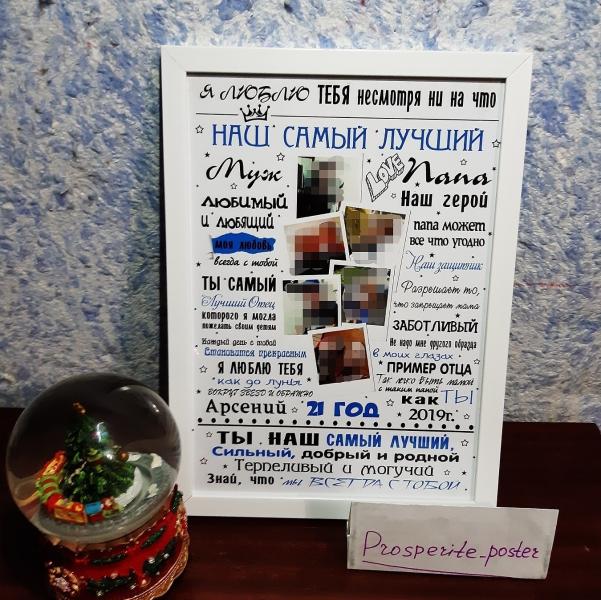 Я ЛЮБЛЮ ТЕБЯ несмотря ни на что
НАШ САМЫЙ ЛУЧШИЙ
Муж
ЛЮБИМЫЙ
И ЛЮБЯЩИЙ
МОЯ ЛЮБОВЬ
всегда с тобой
ТЫ САМЫЙ
Лучший Отец
которого я могла
пожелать своим детям
Каждый день с тобой
Становится прекрасным
Я ЛЮБЛЮ ТЕБЯ
как до луны
ВОКРУГ ЗВЕЗД И ОБРАТНО
Арсений
LOVE
Папа
Наш герой
папа может
все что угодно
Наш защитник
Разрешает то,
что запрещает мама
ЗАБОТЛИВЫЙ
Не надо мне другого образца
в моих глазах
ПРИМЕР ОТЦА
Так легко быть мамой
с таким папой
как ТЫ
21 ГОД
2019г.
ТЫ НАШ САМЫЙ ЛУЧШИЙ,
Сильный, добрый и родной
Терпеливый и могучий
Знай, что мы ВСЕГДА С ТОБОЙ
Prosperite_poster